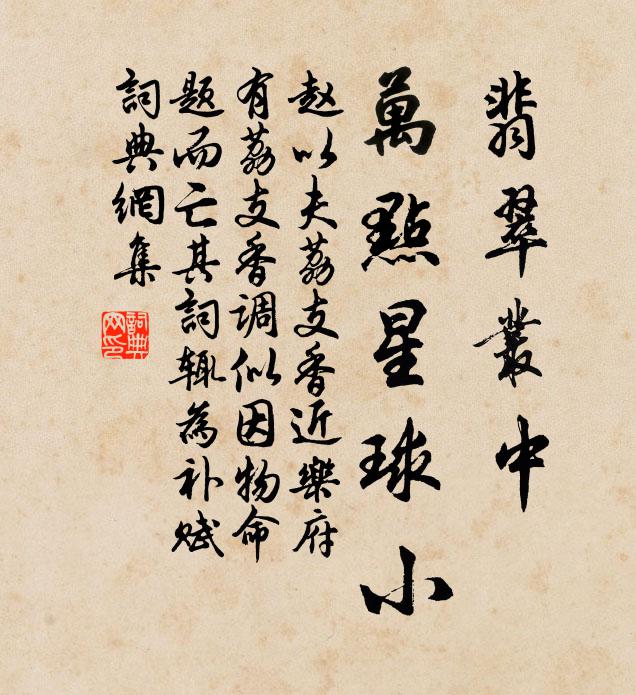 翡翠叢中
萬點星球小
赵以夫荔支香近樂府
有荔支香调似因物命
题而亡其詞辄為补赋
詞典網集
詞典網印